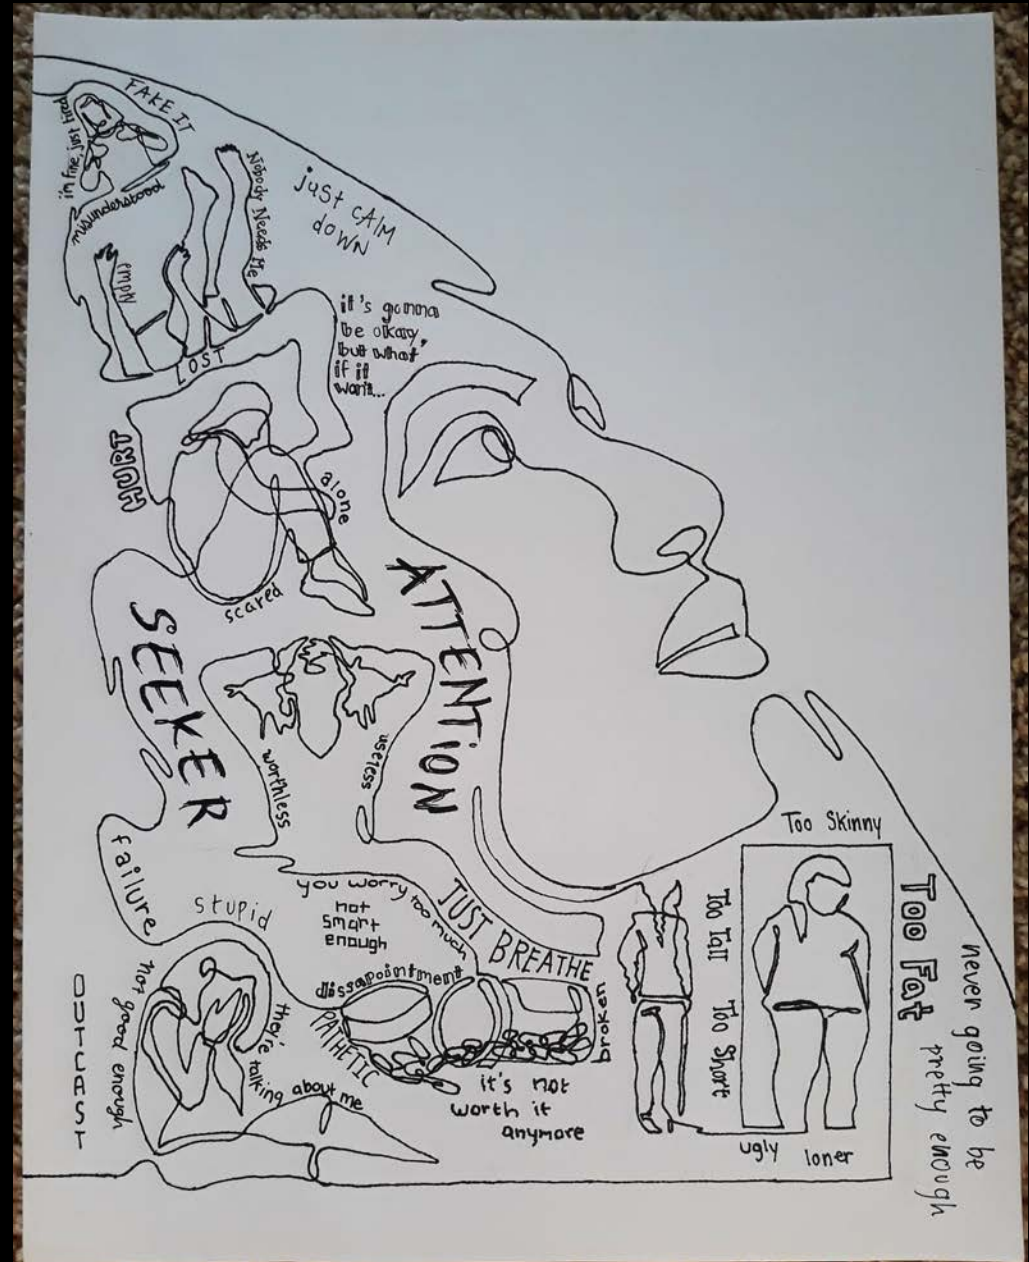 FAKE IT
i'm fine, just tired
misunderstood
Nobody Needs Me
empty
LOST
just CAlM
doWN
it's gonna
be okay,
but what
if it
won't...
HURT
alone
scared
ATTENTiON
SEEKER
worthless
useless
failure
stupid
you worry too much
not
smart
enough
JUST BREATHE
dissapointment
PATHETIC
broken
it's not
worth it
anymore
not good enough
they're talking about me
OUTCAST
Too Skinny
Too Tall
Too Short
Too Fat
ugly
loner
never going to be
pretty enough